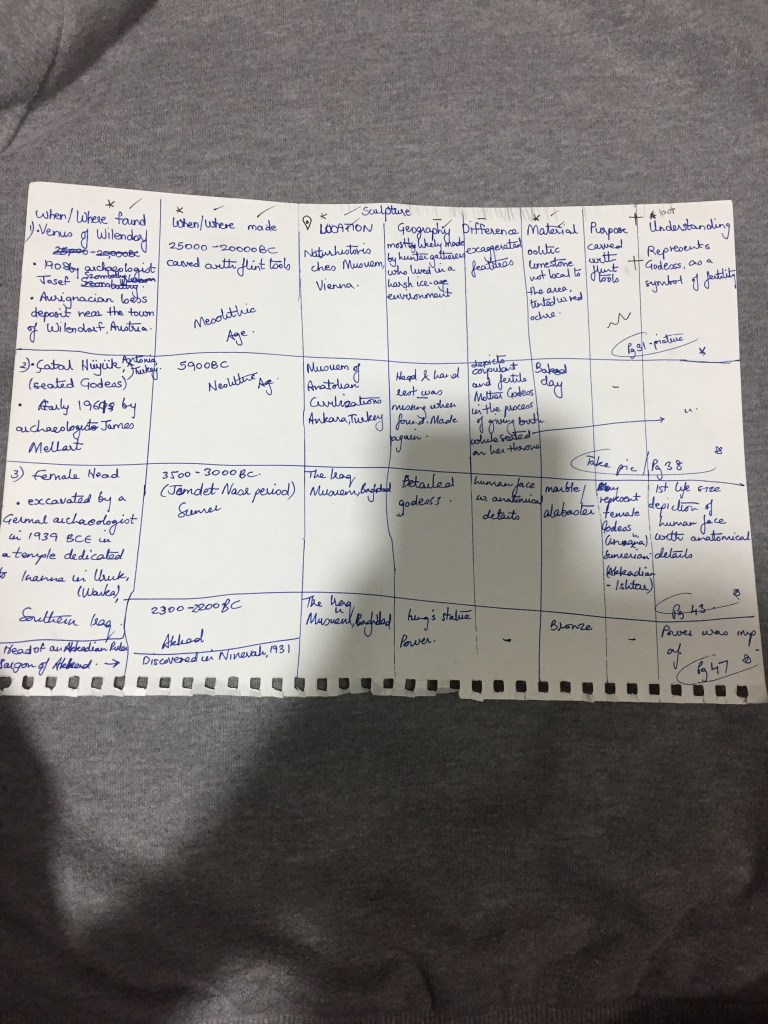 Sculpture
When/Where found
When/Where made
LOCATION
Geography
Difference
Material
Purpose
Understanding
1) Venus of Wilendorf
25000 - 20000BC
• 1908 by archaeologist
Josef Szombathy
• Aurignacian loess
deposit near the town
of Wilendorf, Austria.
25000 - 20000BC
carved with flint tools
Mesolithic
Age.
Naturhistoris
ches Musuem,
Vienna.
mostly likely made
by hunter gatherers
who lived in a
harsh ice-age
environment
exaggerated
features
oolitic
limestone
not local to
the area,
tinted w red
ochre.
carved
with
flint
tools
Represents
Godess, as a
symbol of fertility
Pg 31 - picture
2) • Catal Hüyük,
Turkey
(seated Godess)
• Early 1960s by
archaeologist James
Mellart
5900BC
Neolithic Ag
Musuem of
Anatolian
Civilizations
Ankara, Turkey
Head & hand
rest was
missing when
found. Made
again.
depicts
corpulant
and fertile
Mother Godess
in the process
of giving birth
while seated
on her throne
Baked
clay
-
"
Take pic / Pg 38
3) Female Head
• excavated by a
Germal archaeologist
in 1939 BCE in
a temple dedicated
to Inanna in Uruk,
(Warka)
Southern Iraq.
3500 - 3000BC.
(Jamdet Nasr period)
Sumer
The Iraq
Musuem, Baghdad
Detailed
godess.
human face
w anatomical
details
marble/
alabaster
May
represent
female
Godess
(Innana)
Sumerian
(Akkadian
- Ishtar)
1st life size
depiction of
human face
with anatomical
details
Pg 43
Head of an Akkadian Ruler
Sargon of Akkad. →
2300 - 2200BC
Akkad
Discovered in Ninevah, 1931
The Iraq
Musuem, Baghdad
king's statue
Power.
-
Bronze
-
Power was imp
of
Pg 47